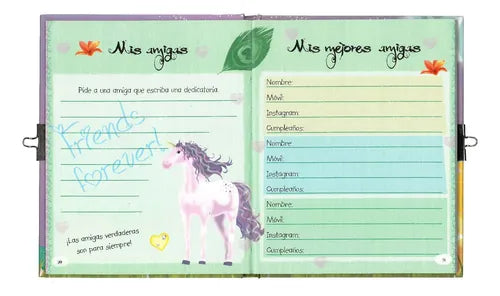 Mis amigas
Pide a una amiga que escriba una dedicatoria.
Friends
forever!
¡Las amigas verdaderas
son para siempre!
Mis mejores amigas
Nombre:
Móvil:
Instagram:
Cumpleaños:
Nombre:
Móvil:
Instagram:
Cumpleaños:
Nombre:
Móvil:
Instagram:
Cumpleaños: